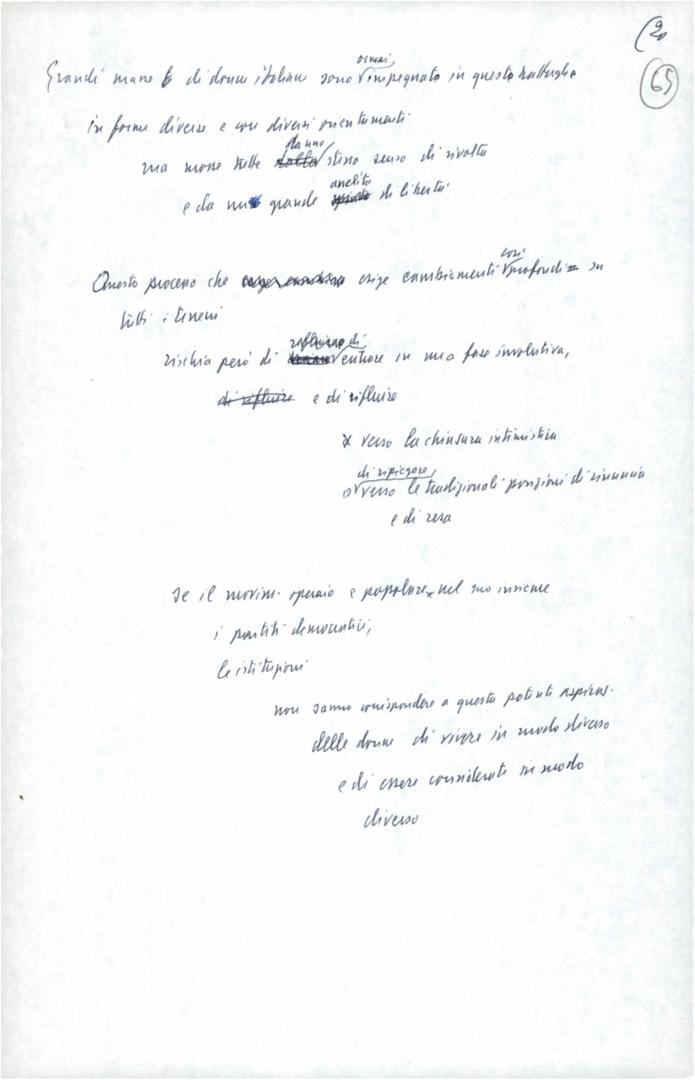 (20
65
Grandi masse di donne italiane sono ormai, impegnate in questa battaglia
in forme diverse e con diversi orientamenti
ma mosse tutte da uno stesso senso di rivolta
e da un grande anelito di libertà.
Questo processo che esige cambiamenti così profondi su
tutti i terreni
rischia però di entrare in una fase involutiva,
di rifluire e di rifluire
x verso la chiusura intimistica
o di ripiegare, verso le tradizionali posizioni di rinuncia
e di resa
Se il movim. operaio e popolare nel suo insieme
i partiti democratici,
le istituzioni
non sanno corrispondere a questa potente aspiraz.
delle donne di vivere in modo diverso
e di essere considerate in modo
diverso